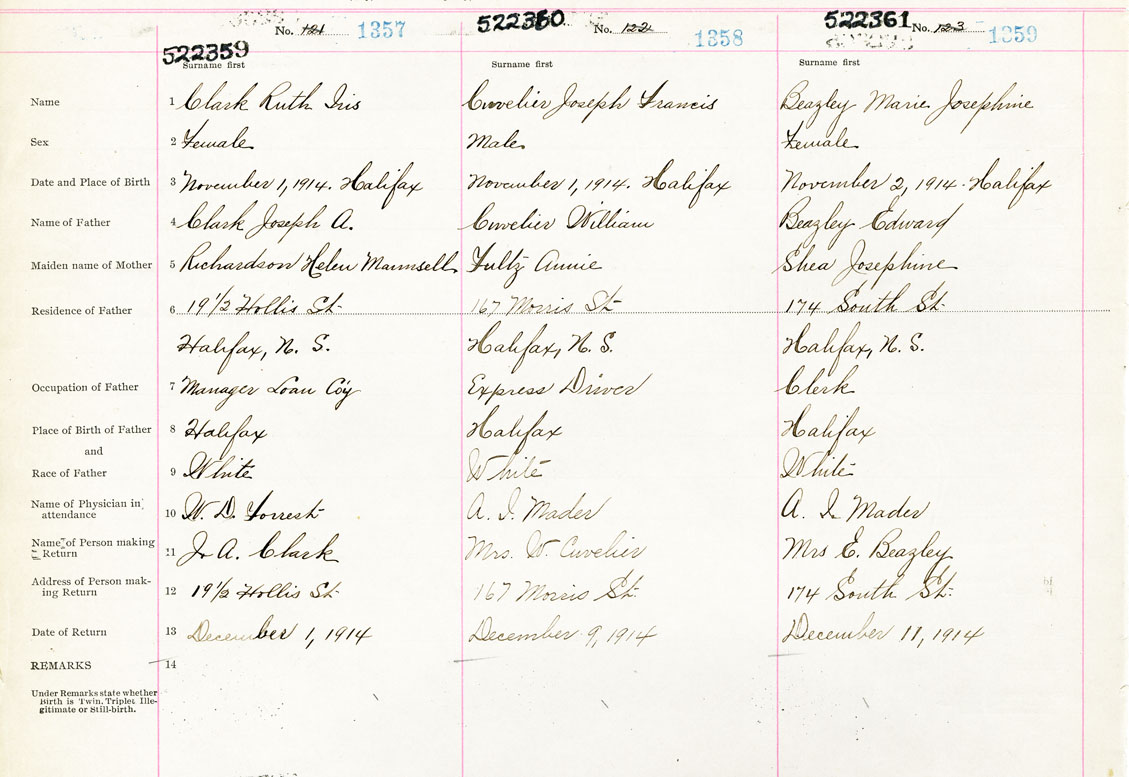 522359 No. 121 1357 522360 No. 122 1358 522361 No. 123 1359
Surname first Surname first Surname first
Name 1 Clark Ruth Iris Cuvelier Joseph Francis Beazley Marie Josephine
Sex 2 Female Male Female
Date and Place of Birth 3 November 1, 1914. Halifax November 1, 1914. Halifax November 2, 1914. Halifax
Name of Father 4 Clark Joseph A. Cuvelier William Beazley Edward
Maiden name of Mother 5 Richardson Helen Maunsell Fultz Annie Shea Josephine
Residence of Father 6 19 1/2 Hollis St. 167 Morris St. 174 South St.
Halifax, N. S. Halifax, N. S. Halifax, N. S.
Occupation of Father 7 Manager Loan Co'y Express Driver Clerk
Place of Birth of Father 8 Halifax Halifax Halifax
and
Race of Father 9 White White White
Name of Physician in
attendance 10 W. D. Forrest A. I. Mader A. I. Mader
Name of Person making
Return 11 J. A. Clark Mrs. W. Cuvelier Mrs E. Beazley
Address of Person mak-
ing Return 12 19 1/2 Hollis St. 167 Morris St. 174 South St.
Date of Return 13 December 1, 1914 December 9, 1914 December 11, 1914
REMARKS 14
Under Remarks state whether
Birth is Twin, Triplet Ille-
gitimate or Still-birth.